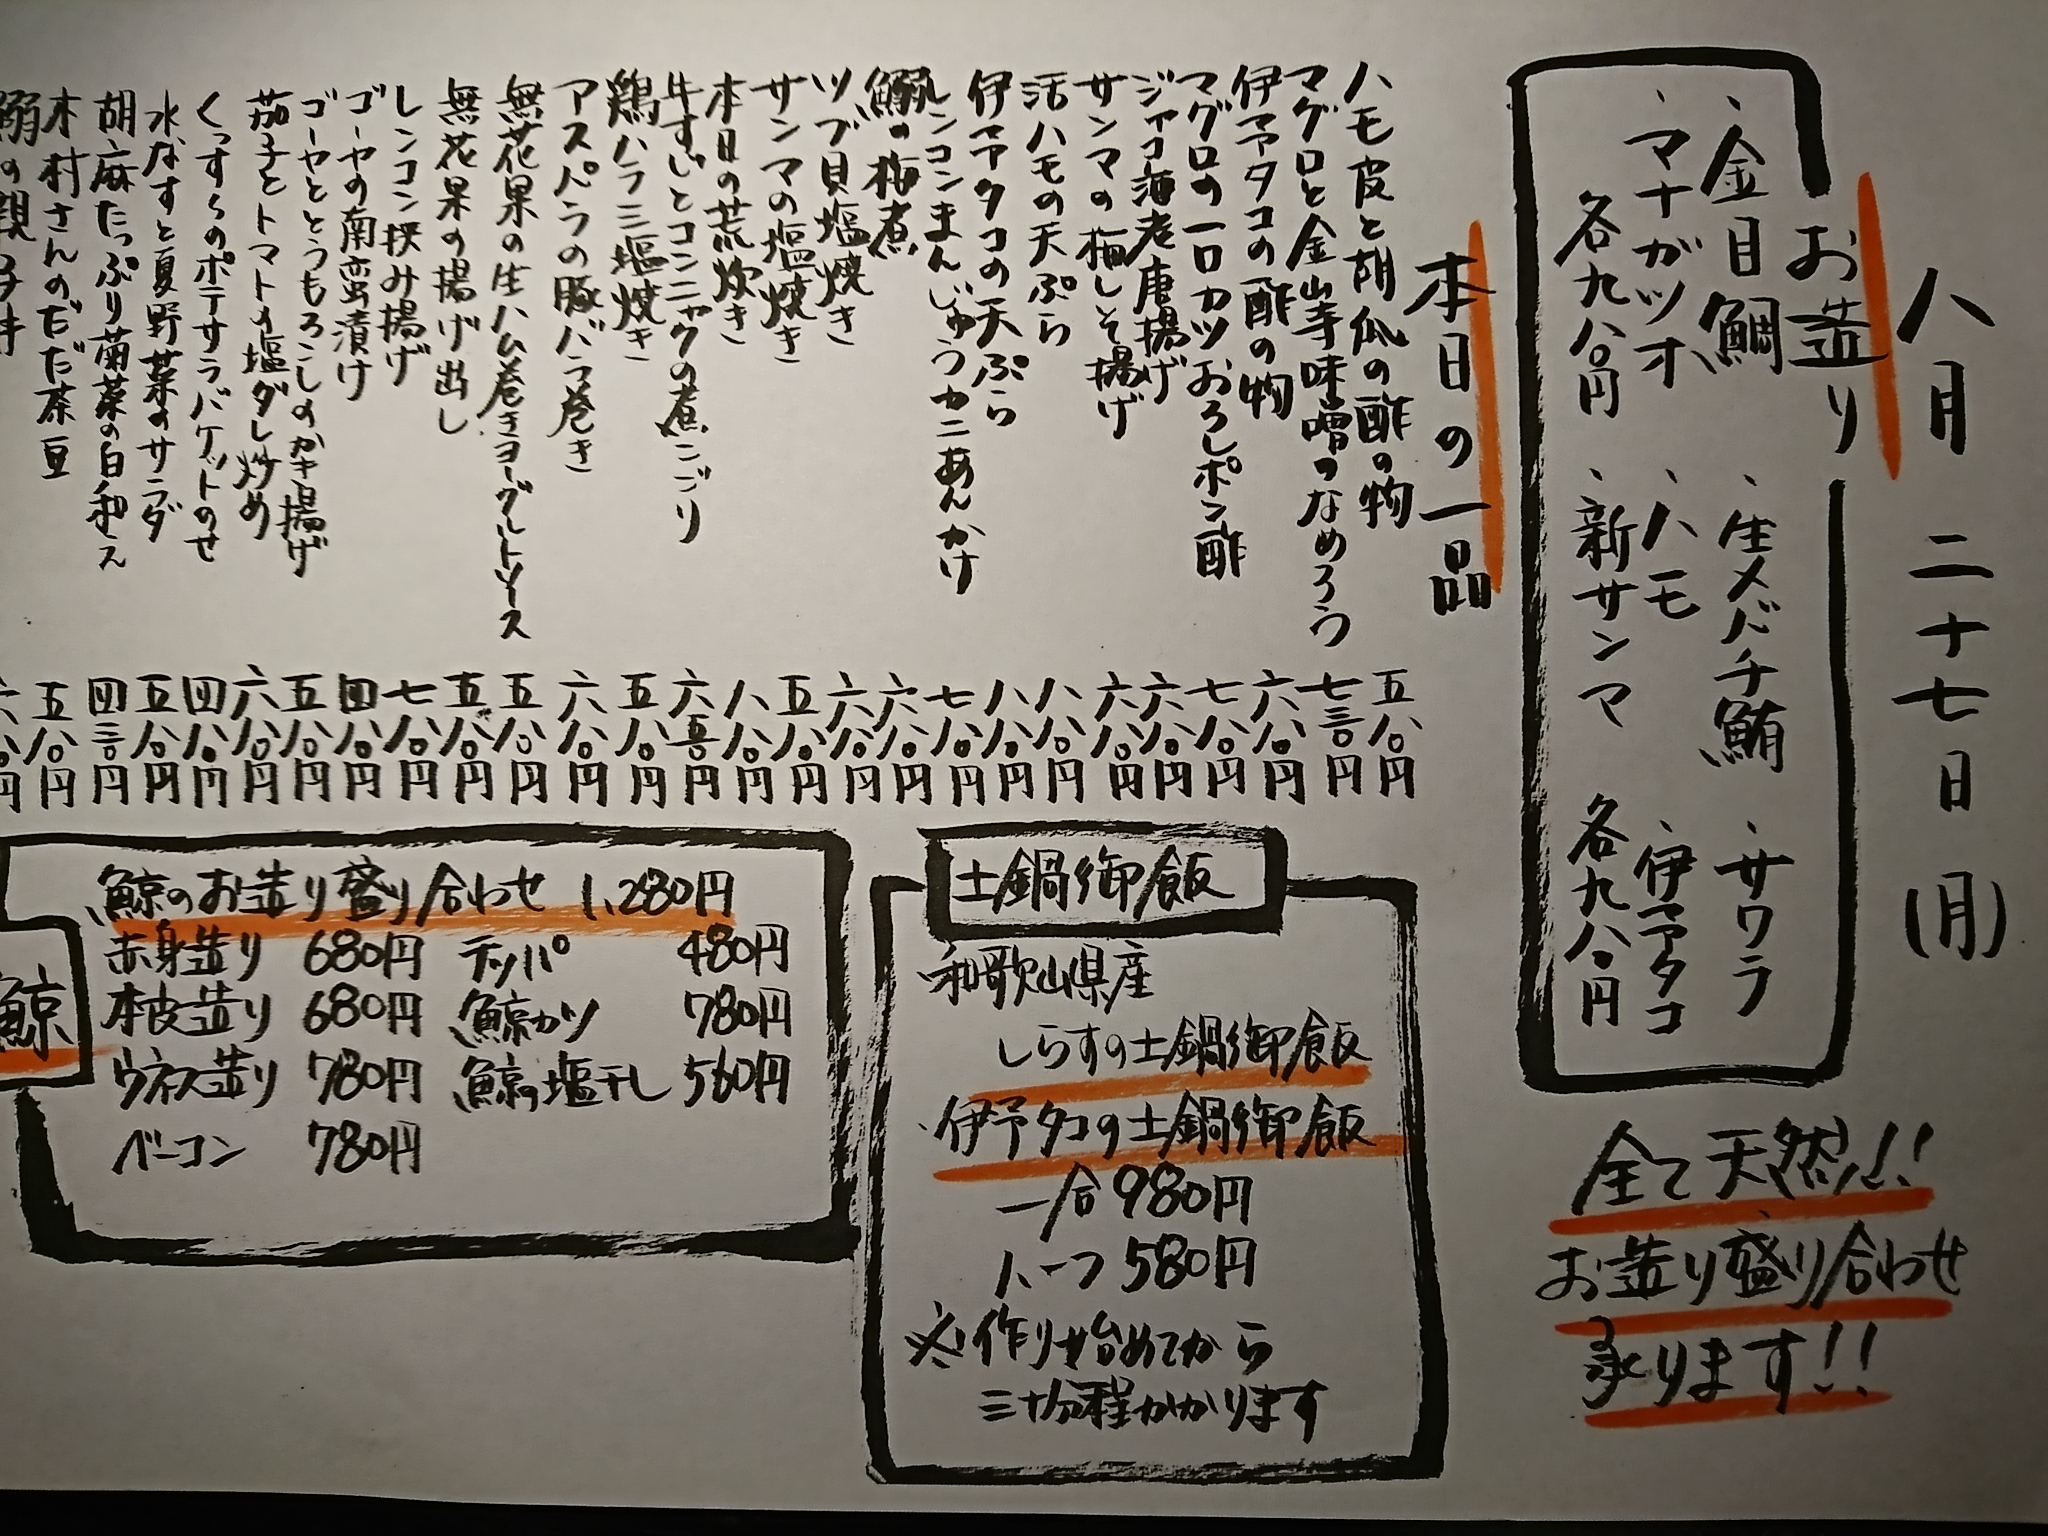 八月二十七日(月)
お造り
、金目鯛 、生メバチ鮪 、サワラ
、マナガツオ 、ハモ 、伊予タコ
各九八〇円 、新サンマ 各九八〇円
全て天然!!
お造り盛り合わせ
承ります!!
本日の一品
ハモ皮と胡瓜の酢の物 五八〇円
マグロと金山寺味噌のなめろう 七三〇円
伊予タコの酢の物 六八〇円
マグロの一口カツおろしポン酢 七八〇円
ジャコ海老唐揚げ 六八〇円
サンマの梅しそ揚げ 六八〇円
活ハモの天ぷら 八八〇円
伊予タコの天ぷら 八八〇円
レンコンまんじゅうカニあんかけ 七八〇円
鰯の梅煮 六八〇円
ツブ貝塩焼き 六八〇円
サンマの塩焼き 五八〇円
本日の荒炊き 八八〇円
牛すじとコンニャクの煮こごり 六五〇円
鶏ハラミ塩焼き 五八〇円
アスパラの豚バラ巻き 六八〇円
無花果の生ハム巻きヨーグルトソース 五八〇円
無花果の揚げ出し 五八〇円
レンコン挟み揚げ 七八〇円
ゴーヤの南蛮漬け 四八〇円
ゴーヤととうもろこしのかき揚げ 五八〇円
茄子とトマトの塩ダレ炒め 六八〇円
くっすらのポテサラバケットのせ 四八〇円
水なすと夏野菜のサラダ 五八〇円
胡麻たっぷり菊菜の白和え 四三〇円
木村さんのだだ茶豆 五八〇円
土鍋御飯
和歌山県産
しらすの土鍋御飯
・伊予タコの土鍋御飯
一合 980円
ハーフ 580円
※作り始めてから
三十分程かかります
鯨
鯨のお造り盛り合わせ 1,280円
赤身造り 680円 テッパ 480円
本皮造り 680円 鯨カツ 780円
ウネス造り 780円 鯨の塩干し 560円
ベーコン 780円